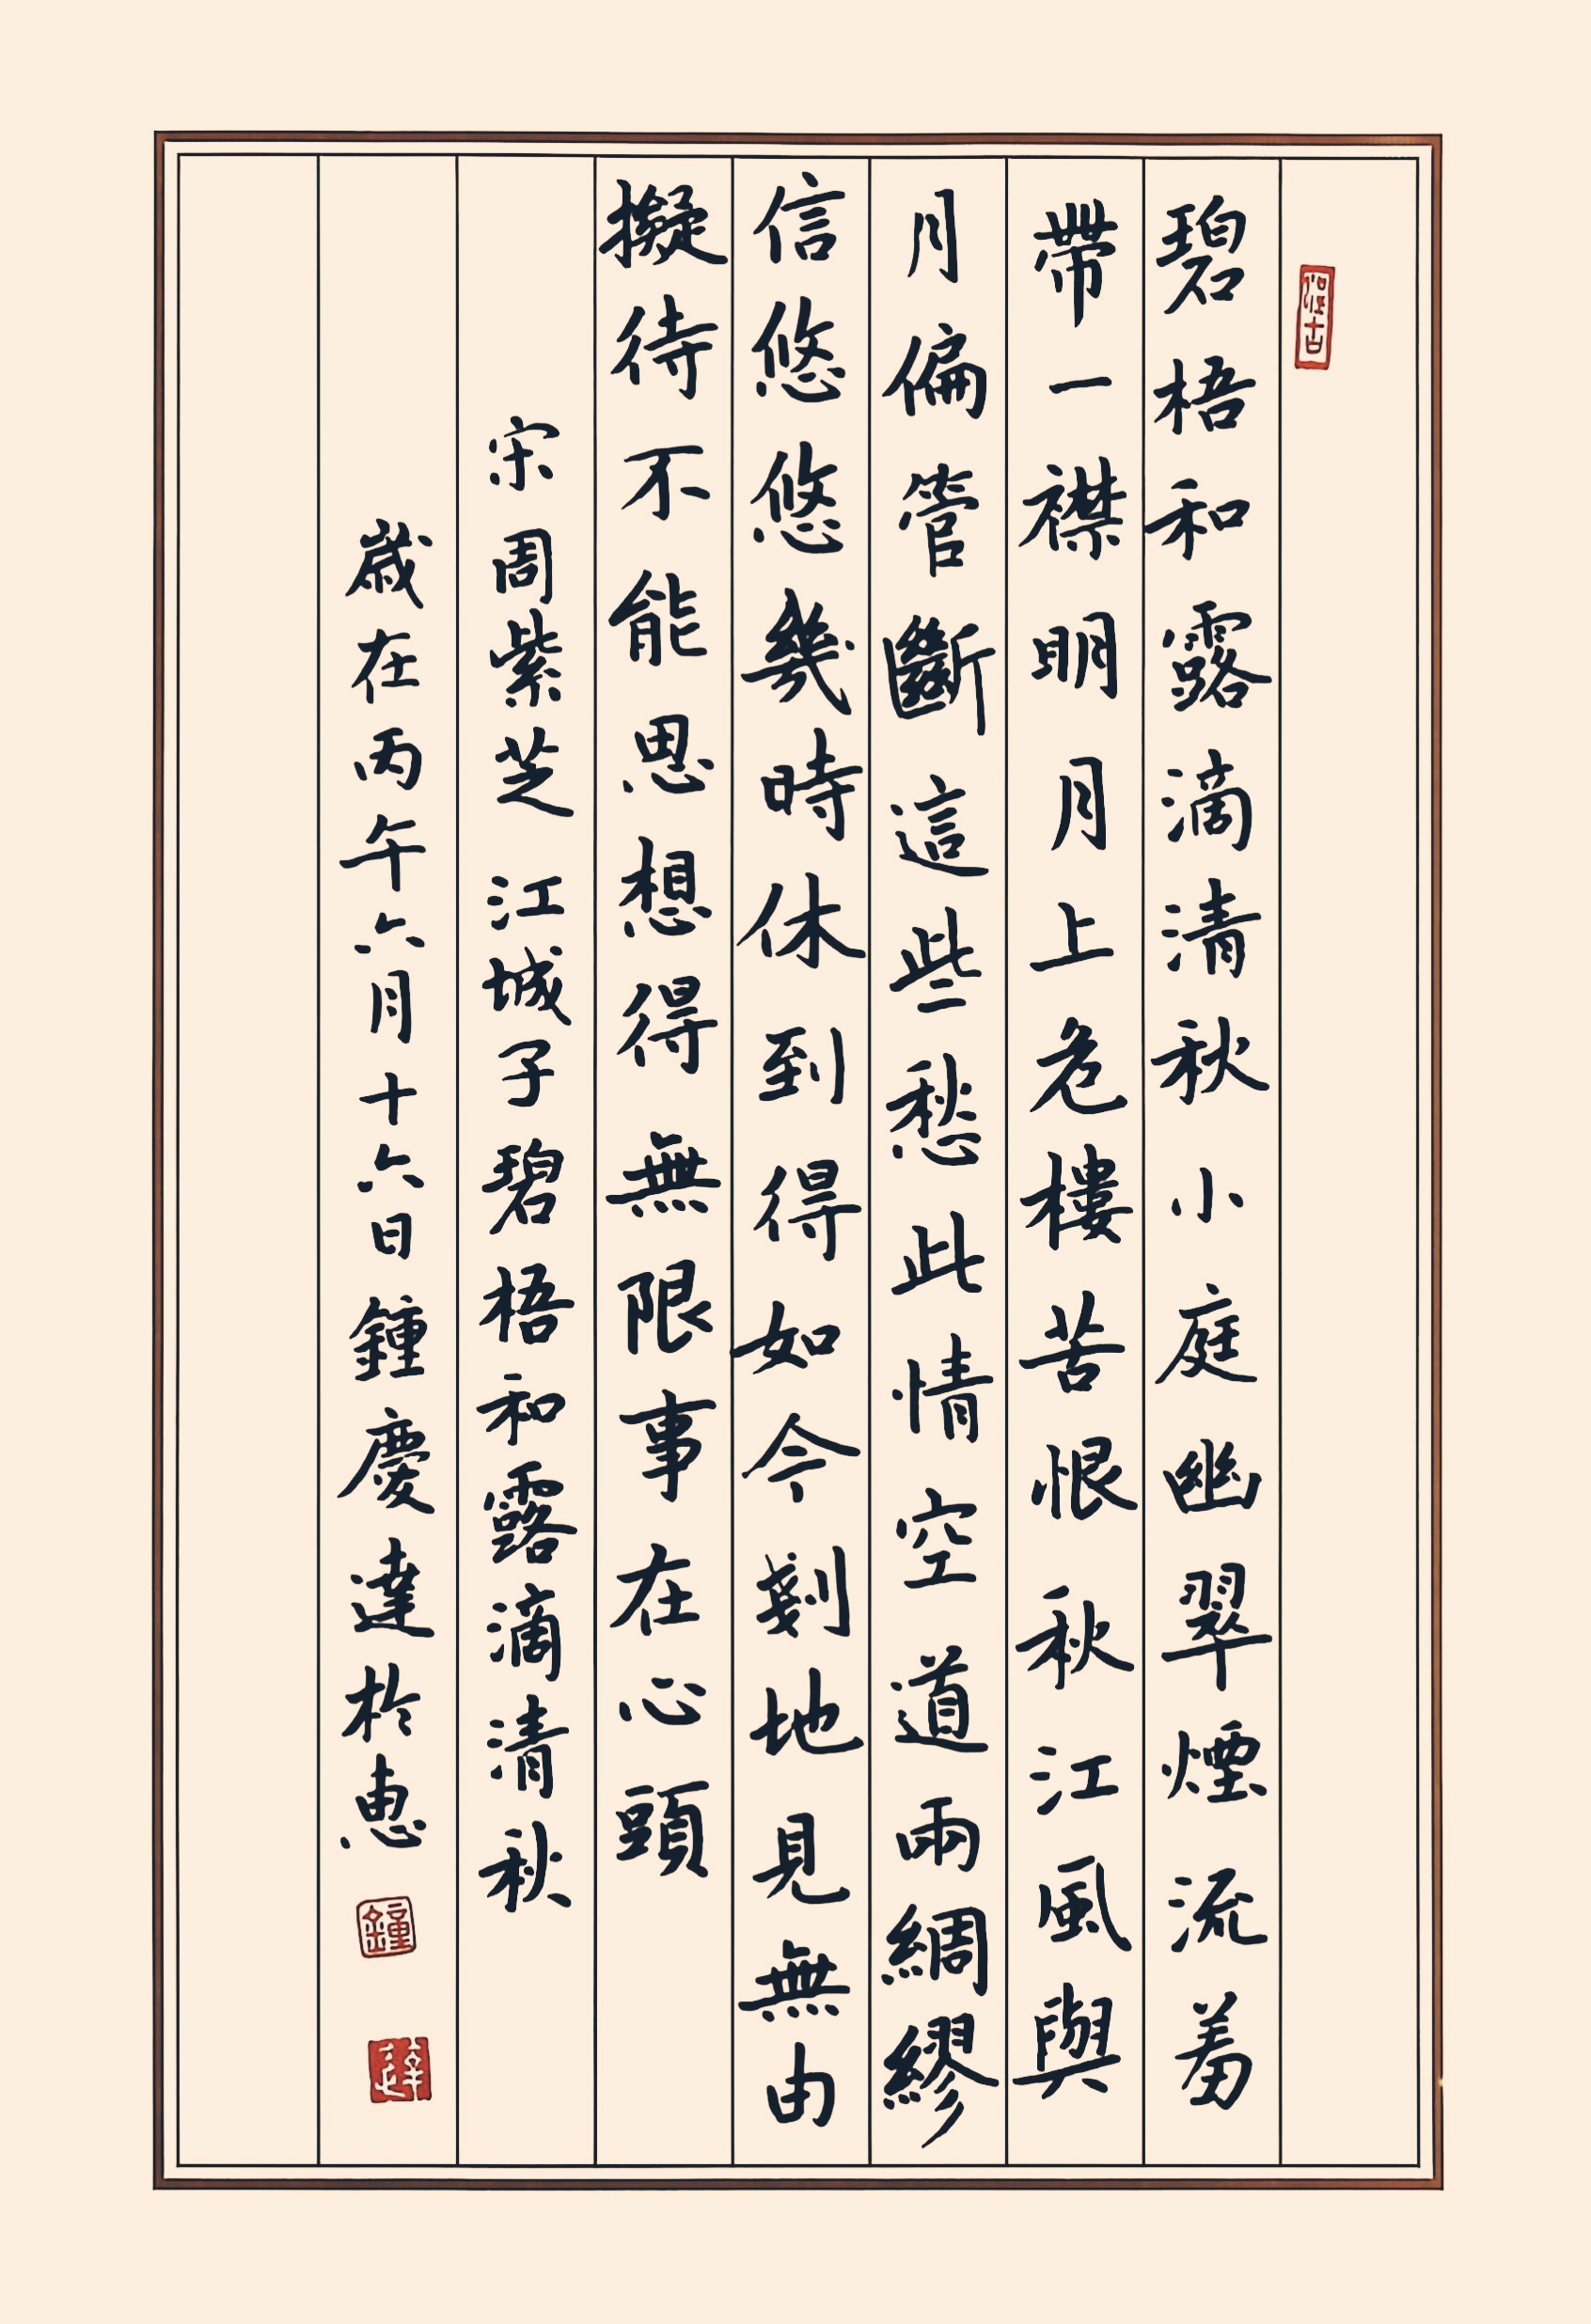 碧梧和露滴清秋小庭幽翠煙流羞
帶一襟明月上危樓苦恨秋江風與
月偏管斷這些愁此情空道兩綢繆
信悠悠幾時休到得如今剗地見無由
擬待不能思想得無限事在心頭
宋周紫芝 江城子碧梧和露滴清秋
歲在丙午六月十六日鍾慶達於惠
鐘
達